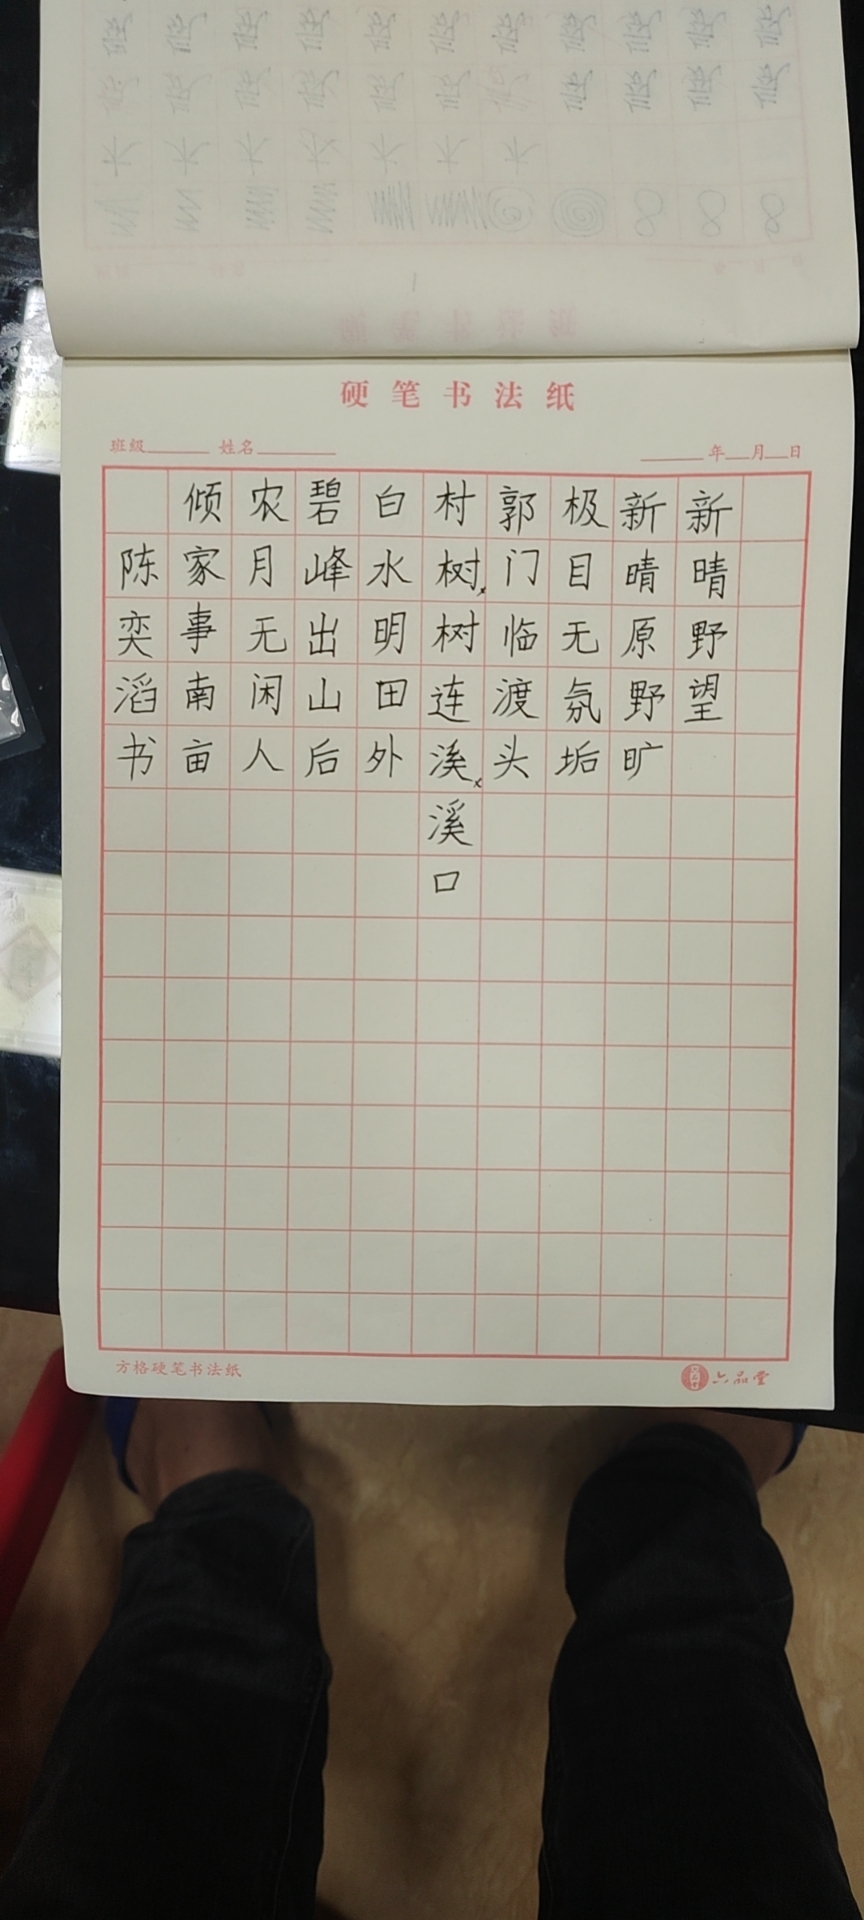 硬笔书法纸
班级 姓名 年 月 日
新晴野望
新晴原野旷
极目无氛垢
郭门临渡头
村树树连溪溪口
白水明田外
碧峰出山后
农月无闲人
倾家事南亩
陈奕滔书
方格硬笔书法纸
六品堂